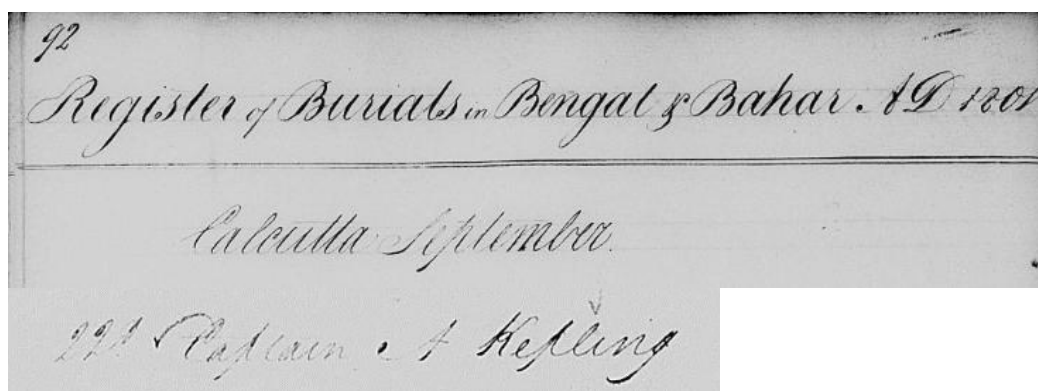 92
Register of Burials in Bengal & Bahar A D 1801
Calcutta September.
22d Captain A Kepling